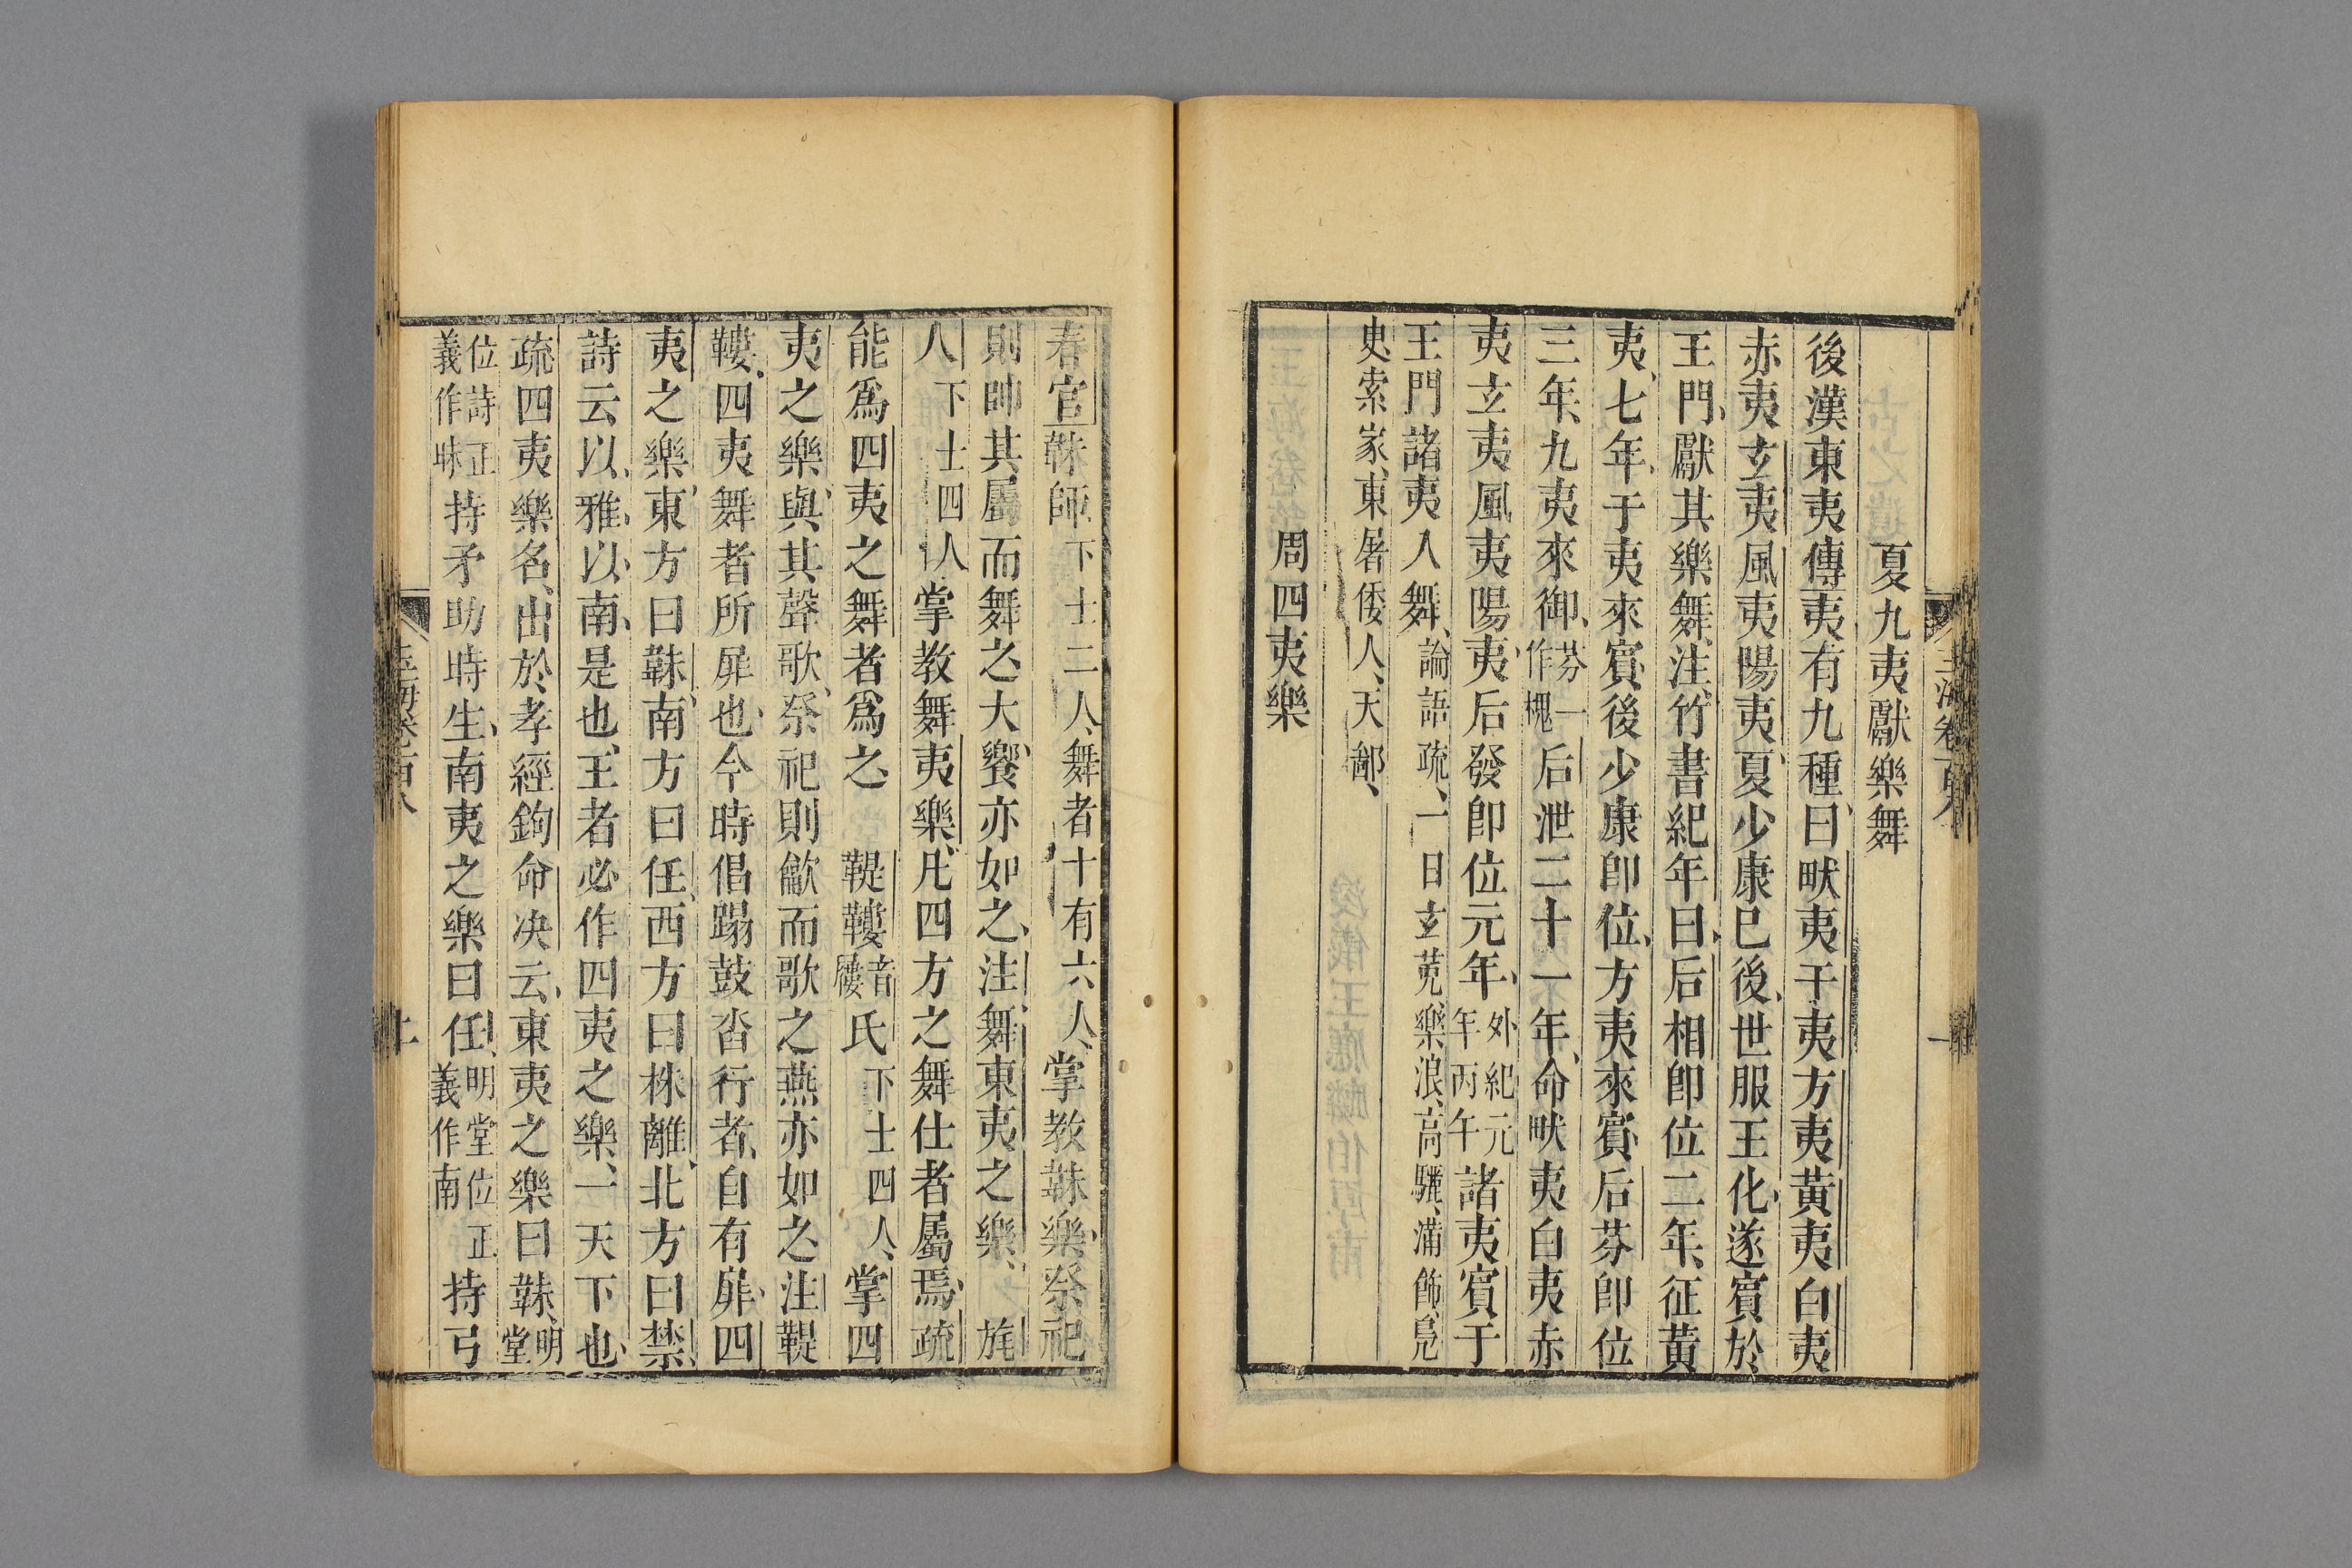 夏九夷獻樂舞
後漢東夷傳夷有九種曰畎夷干夷方夷黃夷白夷
赤夷玄夷風夷陽夷夏少康巳後世服王化遂賓於
王門獻其樂舞注竹書紀年曰后相卽位二年征黃
夷七年于夷來賓後少康卽位方夷來賓后芬卽位
三年九夷來御芬一作槐后泄二十一年命畎夷白夷赤
夷玄夷風夷陽夷后發卽位元年外紀元年丙午諸夷賓于
王門諸夷入舞論語疏一曰玄菟樂浪高驪滿飾鳧
臾索家東屠倭人天鄙
周四夷樂
春官韎師下士二人舞者十有六人掌教韎樂祭祀
則帥其屬而舞之大饗亦如之注舞東夷之樂 旄
人下士四人掌教舞夷樂凡四方之舞仕者屬焉疏
能爲四夷之舞者爲之 鞮鞻音屨氏下士四人掌四
夷之樂與其聲歌祭祀則龡而歌之燕亦如之注鞮
鞻四夷舞者所屝也今時倡蹋鼓沓行者自有屝四
夷之樂東方曰韎南方曰任西方曰株離北方曰禁
詩云以雅以南是也王者必作四夷之樂一天下也
疏四夷樂名出於孝經鉤命决云東夷之樂曰韎明堂
位詩正義作昧持矛助時生南夷之樂曰任明堂位正義作南持弓